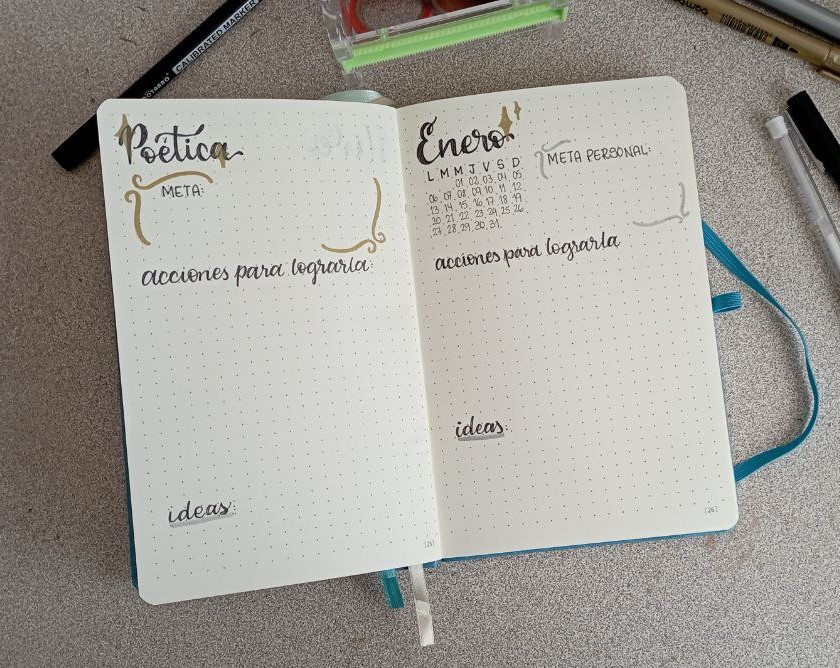 Poética
META:
acciones para lograrla:
ideas:
[25]
Enero
L M M J V S D
01 02 03 04 05
06 07 08 09 10 11 12
13 14 15 16 17 18 19
20 21 22 23 24 25 26
27 28 29 30 31
META PERSONAL:
acciones para lograrla
ideas:
[26]
CALIBRATED MARKER